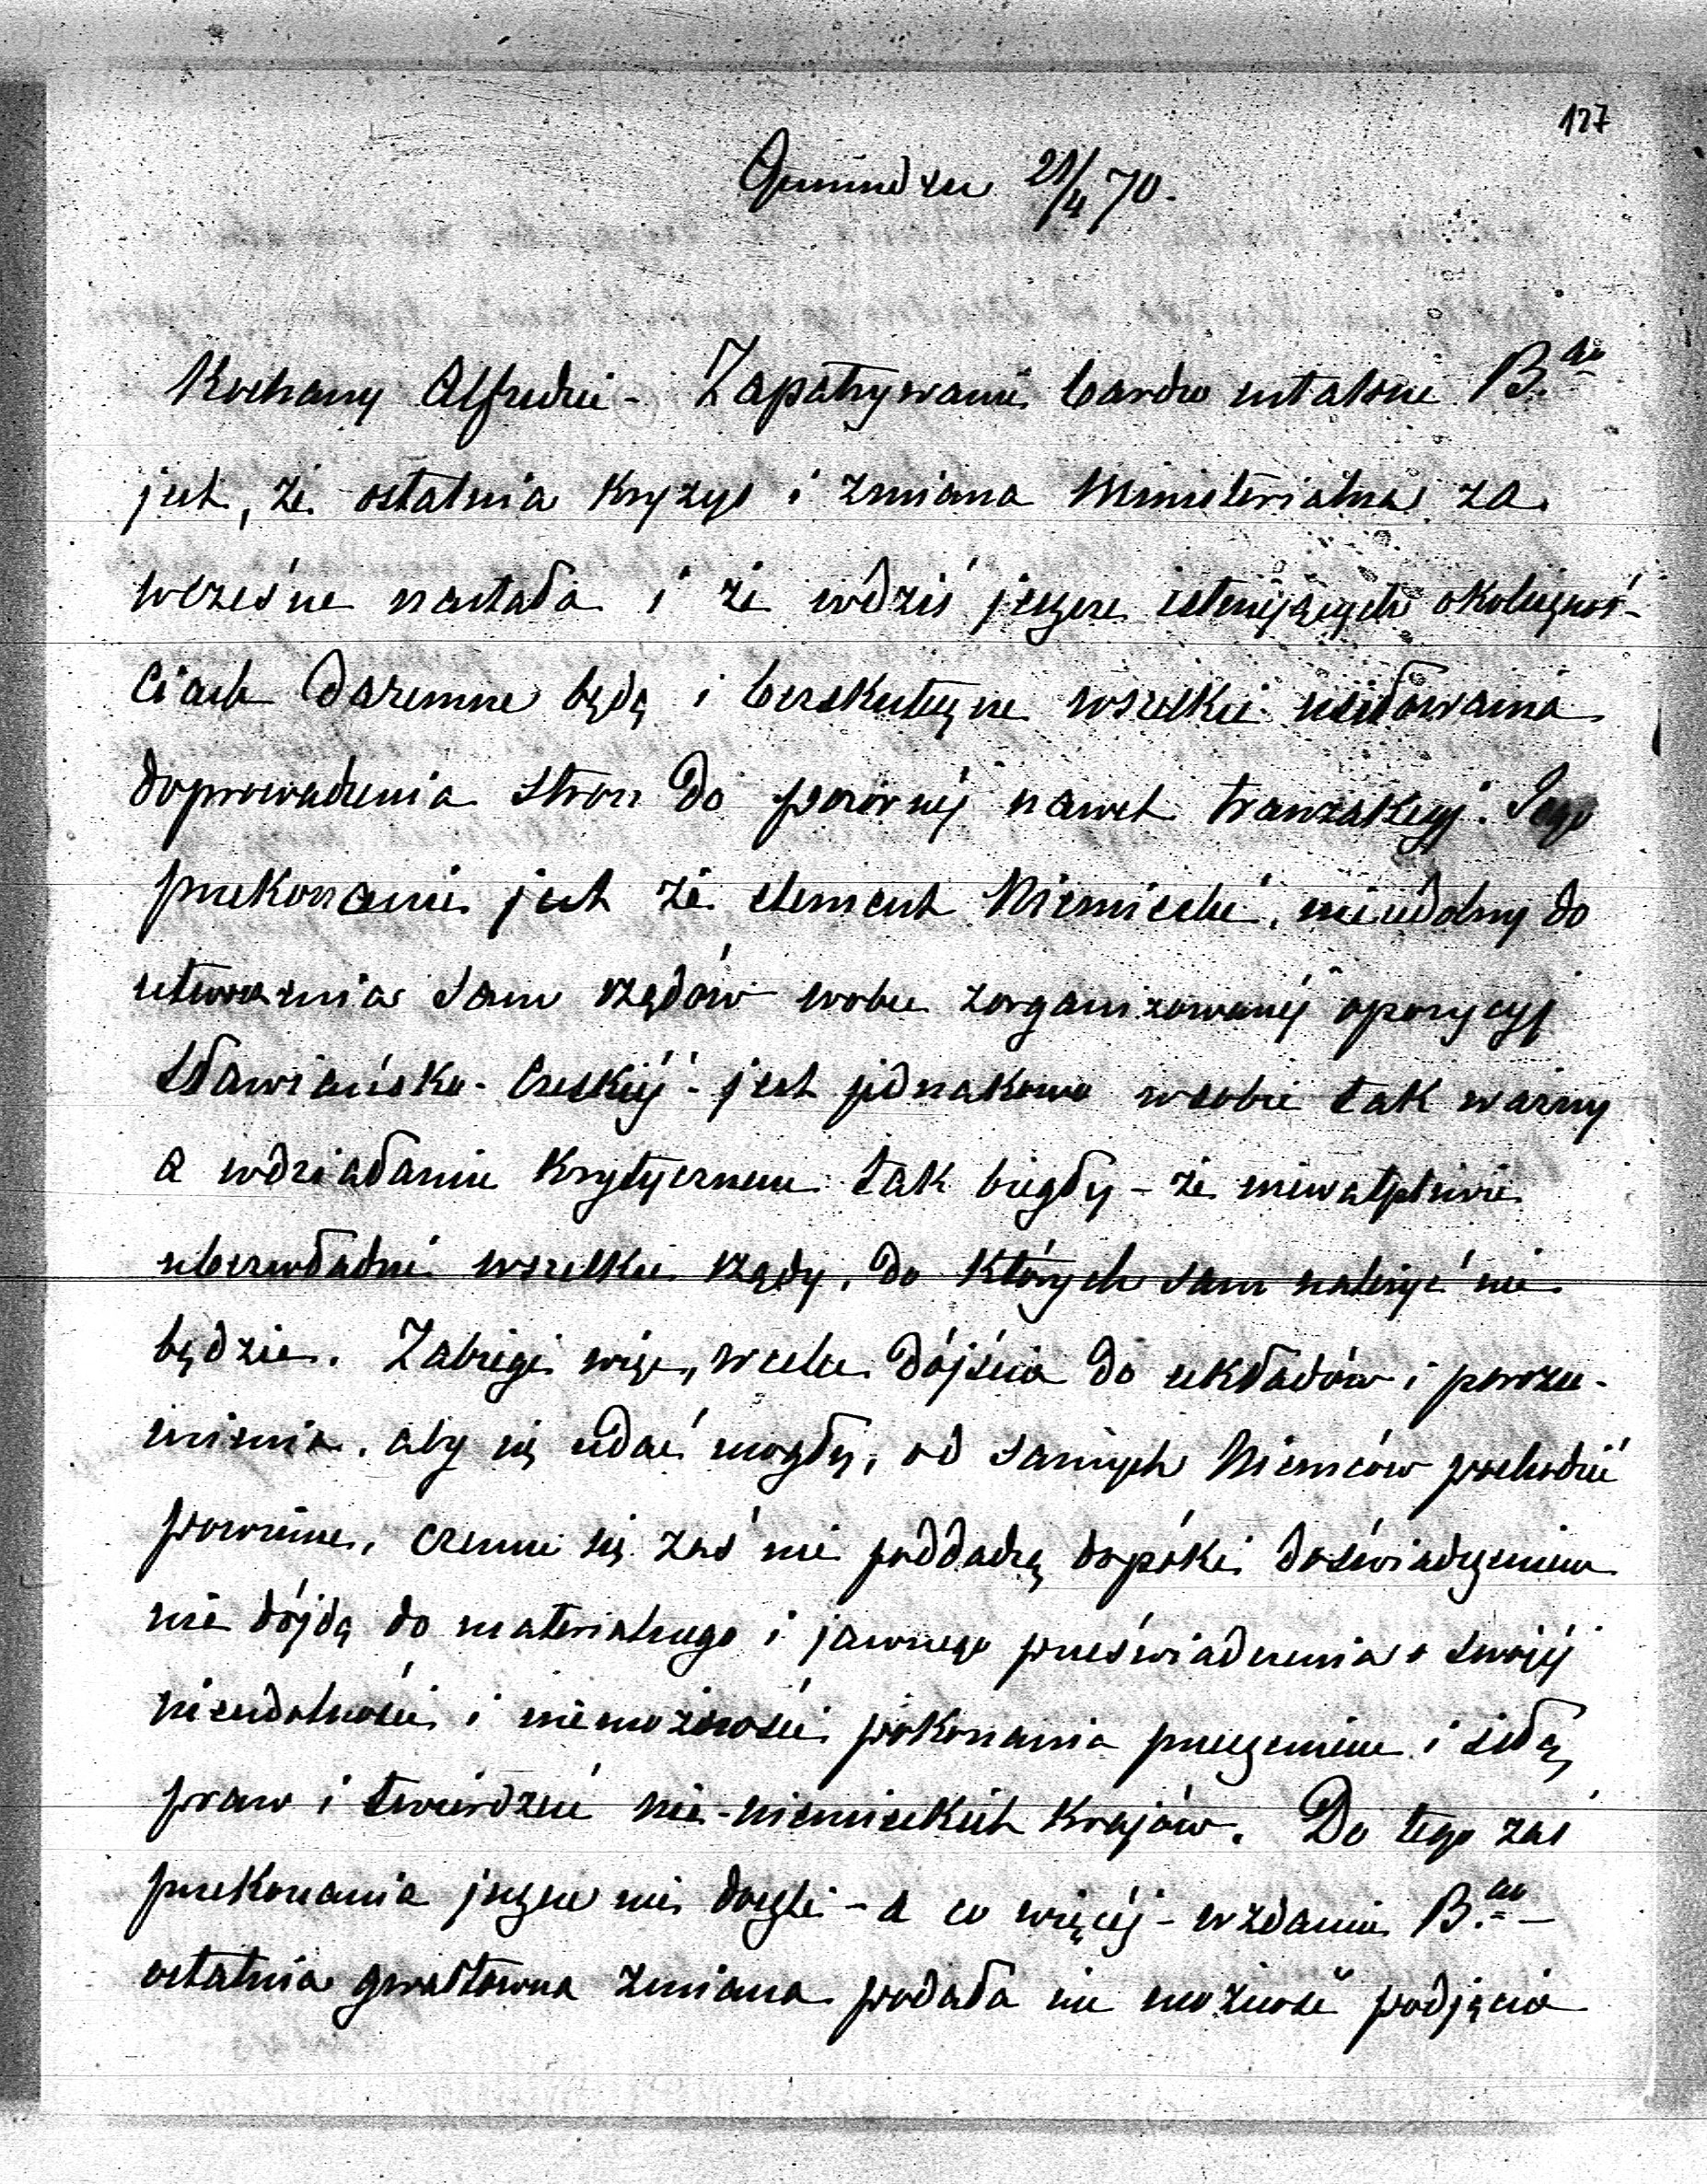 127
Gmunden 21/4 70.
Kochany Alfredzie - Zapatrywanie bardzo ustalone B.
jest, że ostatnia kryzys i zmiana Ministerialna za
wcześnie nastała i że wdziś jeszcze istniejących okolicznoś-
ciach daremne będą i bezskuteczne wszelkie usiłowania
doprowadzenia stron do pozornéj nawet tranzakcyj. Jego
przekonanie jest że element Niemiecki, nieudolny do
utworzenia sam rządów wobec zorganizowanéj opozycyj
Sławiańsko-Czeskiéj - jest jednakowo wsobie tak ważny
a wdziałaniu krytycznem tak biegły - że niewątpliwie
ubezwładni wszelkie rządy, do których sam należyć nie
będzie. Zabiegi więc, wcelu dójścia do układów i porozu-
mienia, aby się udać mogły, od samych Niemców pochodzić
powinne, czemu się zaś nie poddadzą dopóki doświadczeniem
nie dójdą do materialnego i jawnego przeświadczenia o swojéj
nieudolności i niemożności pokonania przeczeniem i siłą
praw i twierdzeń nie-niemieckich krajów. Do tego zaś
przekonania jeszcze nie doszli - a co więcéj - wzdaniu B. -
ostatnia gwałtowna zmiana podała im możność podjęcia